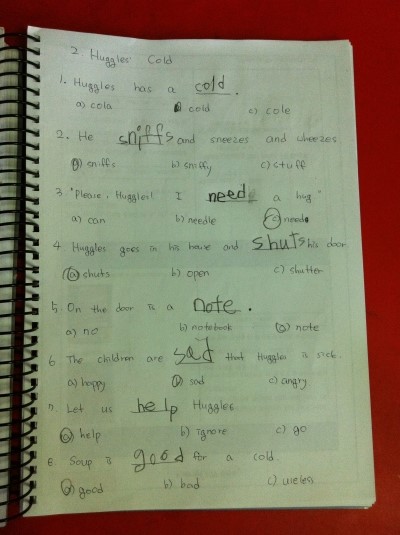 2 Huggles' Cold
1. Huggles has a cold.
a) cola b) cold c) cole
2. He sniffs and sneezes and wheezes
a) sniffs b) sniffy c) stuff
3 "Please, Huggles! I need a hug"
a) can b) needle c) need
4. Huggles goes in his house and shuts his door
a) shuts b) open c) shutter
5. On the door is a note.
a) no b) notebook c) note
6 The children are sad that Huggles is sick.
a) happy b) sad c) angry
7. Let us help Huggles
a) help b) ignore c) go
8 Soup is good for a cold.
a) good b) bad c)